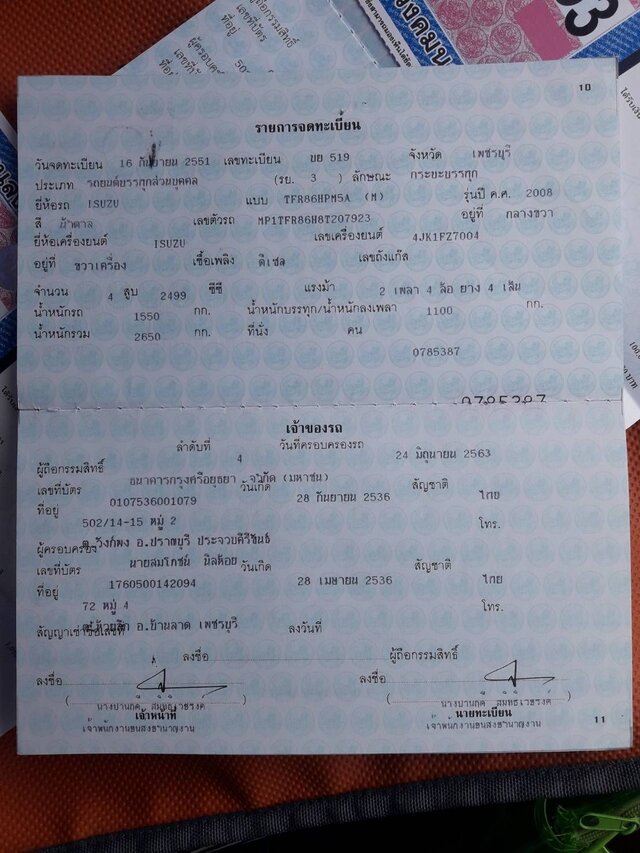 ผู้ถือกรรมสิทธิ์
เลขที่บัตร
ที่อยู่
10
รายการจดทะเบียน
วันจดทะเบียน 16 กันยายน 2551 เลขทะเบียน บย 519 จังหวัด เพชรบุรี
ประเภท รถยนต์บรรทุกส่วนบุคคล (รย. 3 ) ลักษณะ กระบะบรรทุก
ยี่ห้อรถ ISUZU แบบ TFR86HPM5A (M) รุ่นปี ค.ศ. 2008
สี น้ำตาล เลขตัวรถ MP1TFR86H8T207923 อยู่ที่ กลางขวา
ยี่ห้อเครื่องยนต์ ISUZU เลขเครื่องยนต์ 4JK1FZ7004
อยู่ที่ ขวาเครื่อง เชื้อเพลิง ดีเซล เลขถังแก๊ส
จำนวน 4 สูบ 2499 ซีซี แรงม้า 2 เพลา 4 ล้อ ยาง 4 เส้น
น้ำหนักรถ 1550 กก. น้ำหนักบรรทุก/น้ำหนักลงเพลา 1100 กก.
น้ำหนักรวม 2650 กก. ที่นั่ง คน
0785387
เจ้าของรถ
ลำดับที่ 4 วันที่ครอบครองรถ 24 มิถุนายน 2563
ผู้ถือกรรมสิทธิ์ ธนาคารกรุงศรีอยุธยา จำกัด (มหาชน)
เลขที่บัตร 0107536001079 วันเกิด 28 กันยายน 2536 สัญชาติ ไทย
ที่อยู่ 502/14-15 หมู่ 2 โทร.
ต.วังก์พง อ.ปราณบุรี ประจวบคีรีขันธ์
ผู้ครอบครอง นายสมโภชน์
เลขที่บัตร 1760500142094 วันเกิด 28 เมษายน 2536 สัญชาติ ไทย
ที่อยู่ 72 หมู่ 4 โทร.
อ.บ้านลาด เพชรบุรี
สัญญาเช่าซื้อเลขที่ ลงวันที่
ลงชื่อ ผู้ถือกรรมสิทธิ์
ลงชื่อ ลงชื่อ
เจ้าหน้าที่ นายทะเบียน
เจ้าพนักงานขนส่งชำนาญงาน เจ้าพนักงานขนส่งชำนาญงาน
11